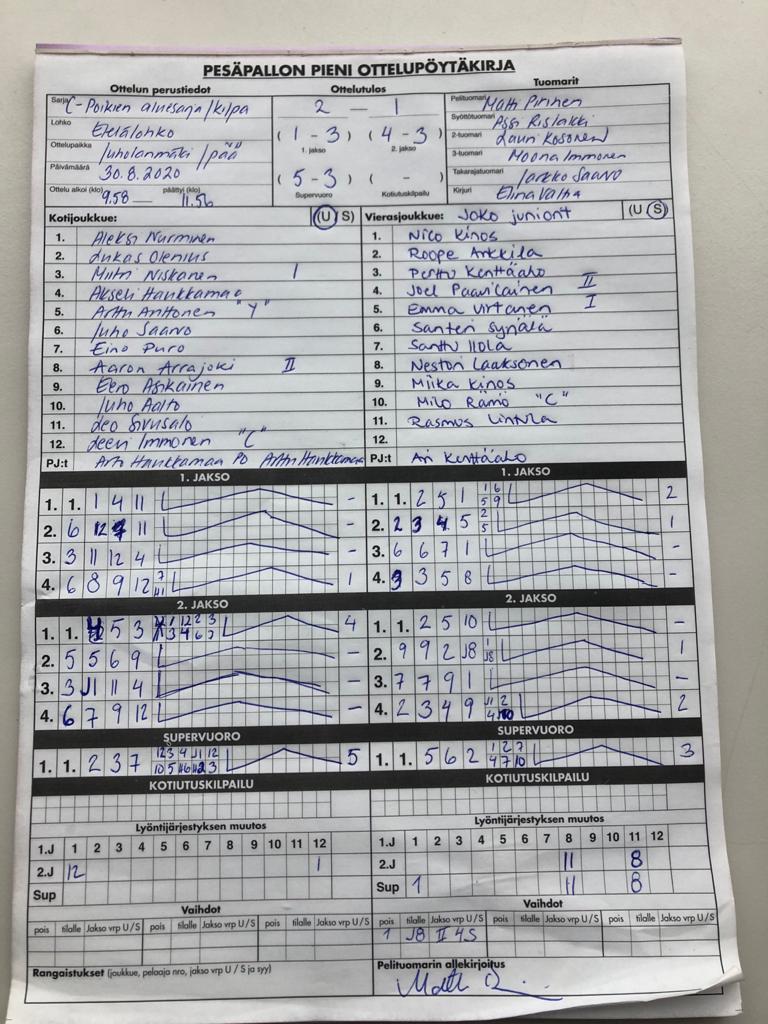 PESÄPALLON PIENI OTTELUPÖYTÄKIRJA
Ottelun perustiedot
Ottelutulos
Tuomarit
Sarja C-Poikien aluesarja/kilpa
Lohko Etelälohko
Ottelupaikka Juholanmäki /pää
Päivämäärä 30.8.2020
Ottelu alkoi (klo) 9.58 päättyi (klo) 11.56
2 – 1
(1 - 3) (4 - 3)
1. jakso 2. jakso
(5 - 3) ( - )
Supervuoro Kotiutuskilpailu
Pelituomari Matti Pirinen
Syöttötuomari Assi Rislakki
2-tuomari Lauri Kosonen
3-tuomari Moona Immonen
Takarajatuomari Jarkko Saarvo
Kirjuri Elina Valta
Kotijoukkue: (U S)
1. Aleksi Nurminen
2. Lukas Olenius
3. Miitri Niskanen I
4. Akseli Haukkamaa
5. Arttu Anttonen "Y"
6. Juho Saarvo
7. Eino Puro
8. Aaron Arrajoki II
9. Eero Asikainen
10. Juho Aalto
11. Leo Sivusalo
12. Leevi Immonen "C"
PJ:t Arto Haukkamaa PD Arttu Haukkamaa
Vierasjoukkue: JoKo juniorit (U S)
1. Nico Kinos
2. Roope Arkkila
3. Perttu Kenttäaho
4. Joel Paavilainen II
5. Emma Virtanen I
6. Santeri Syrjälä
7. Santtu Ilola
8. Nestori Laaksonen
9. Miika Kinos
10. Milo Rämö "C"
11. Rasmus Lintula
12.
PJ:t Ari Kenttäaho
1. JAKSO
1. 1. 1 4 11 –
2. 6 12 11 –
3. 3 11 12 4 –
4. 6 8 9 12 7 11 1
1. JAKSO
1. 1. 2 5 1 1 6 5 9 2
2. 2 3 4 5 2 5 1
3. 6 6 7 1 –
4. 3 3 5 8 –
2. JAKSO
1. 1. 5 3 4
2. 5 5 6 9 –
3. 3 J1 11 4 –
4. 6 7 9 12 –
2. JAKSO
1. 1. 2 5 10 –
2. 9 9 2 J8 1 J8 1
3. 7 7 9 1 –
4. 2 3 4 9 J1 2 4 10 2
SUPERVUORO
1. 1. 2 3 7 5
SUPERVUORO
1. 1. 5 6 2 1 2 7 4 7 10 3
KOTIUTUSKILPAILU
KOTIUTUSKILPAILU
Lyöntijärjestyksen muutos
1.J 1 2 3 4 5 6 7 8 9 10 11 12
2.J 12 1
Sup
Lyöntijärjestyksen muutos
1.J 1 2 3 4 5 6 7 8 9 10 11 12
2.J 11 8
Sup 1 11 8
Vaihdot
pois tilalle Jakso vrp U/S pois tilalle Jakso vrp U/S pois tilalle Jakso vrp U/S
Vaihdot
pois tilalle Jakso vrp U/S pois tilalle Jakso vrp U/S pois tilalle Jakso vrp U/S
1 J8 II 4S
Rangaistukset (joukkue, pelaaja nro, jakso vrp U / S ja syy)
Pelituomarin allekirjoitus